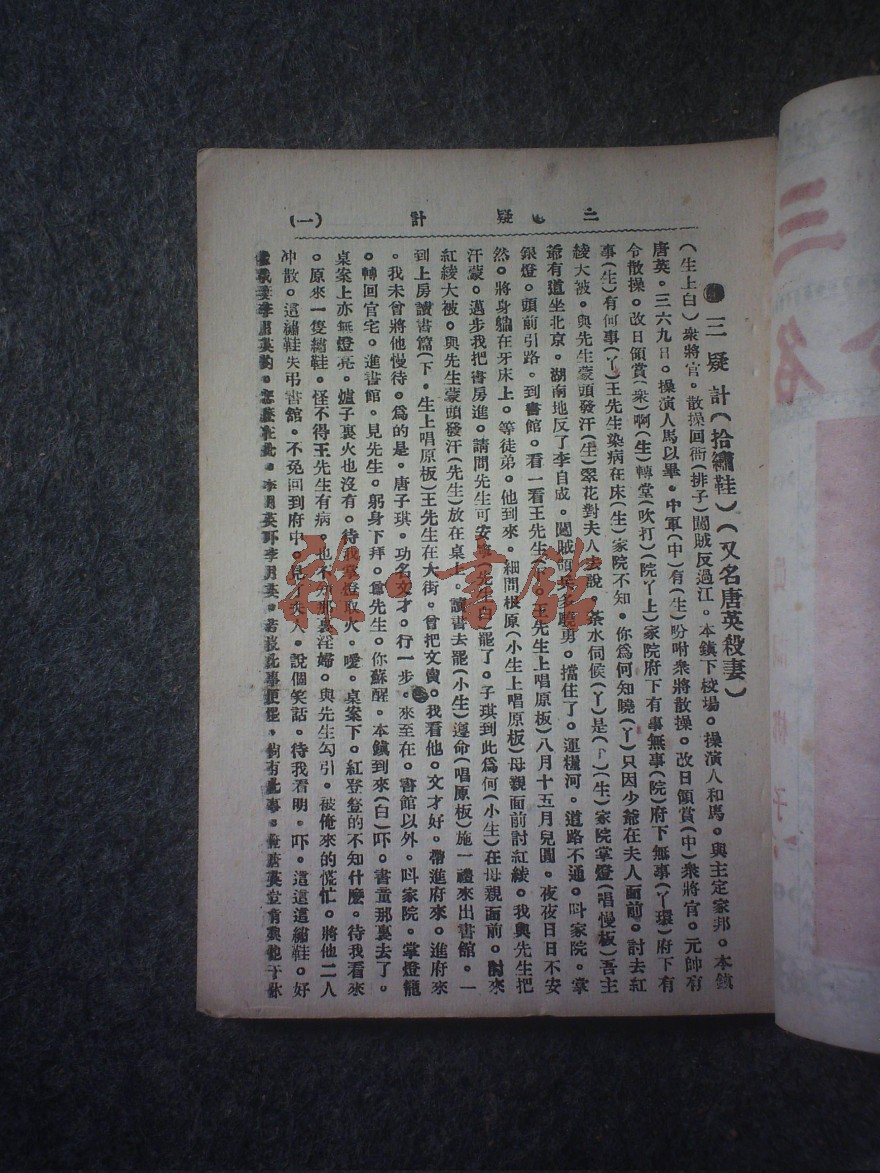 三疑計 (一)
三疑計(拾繡鞋)(又名唐英殺妻)
(生上白)衆將官。散操回衙(排子)闖賊反過江。本鎮下校場。操演人和馬。與主定家邦。本鎮
唐英。三六九日。操演人馬以畢。中軍(中)有(生)吩咐衆將散操。改日領賞(中)衆將官。元帥有
令散操。改日領賞(衆)啊(生)轉堂(吹打)(院丫上)家院府下有事無事(院)府下無事(丫環)府下有
事(生)有何事(丫)王先生染病在床(生)家院不知。你為何知曉(丫)只因少爺在夫人面前。討去紅
綾大被。與先生蒙頭發汗(生)翠花對夫人去說。茶水伺候(丫)是(下)(生)家院掌燈(唱慢板)吾主
爺有道坐北京。湖南地反了李自成。闖賊領兵多驍勇。擋住了。運糧河。道路不通。叫家院。掌
銀燈。頭前引路。到書館。看一看王先生(下。王先生上唱原板)八月十五月兒圓。夜夜日日不安
然。將身躺在牙床上。等徒弟。他到來。細問根原(小生上唱原板)母親面前討紅綾。我與先生把
汗蒙。邁步我把書房進。請問先生可安寧(先生白)罷了。子琪到此為何(小生)在母親面前。討來
紅綾大被。與先生蒙頭發汗(先生)放在桌上。讀書去罷(小生)遵命(唱原板)施一禮來出書館。一
到上房讀書篇(下。生上唱原板)王先生在大街。曾把文賣。我看他。文才好。帶進府來。進府來
。我未曾將他慢待。為的是。唐子琪。功名文才。行一步。來至在。書館以外。叫家院。掌燈籠
。轉回官宅。進書館。見先生。躬身下拜。尊先生。你蘇醒。本鎮到來(白)吓。書童那裏去了。
桌案上亦無燈亮。爐子裏火也沒有。待我掌燈取火。噯。桌案下。紅登登的不知什麼。待我看來
。原來一隻繡鞋。怪不得王先生有病。也不知那裏淫婦。與先生勾引。被俺來的慌忙。將他二人
冲散。這繡鞋失弔書館。不免回到府中。見了夫人。說個笑話。待我看明。吓。這這這繡鞋。好
李月英的。怎麼在此。李月英吓李月英。若無此事便罷。倘有此事。俺唐英豈肯與他干休
雜·書館
三
名